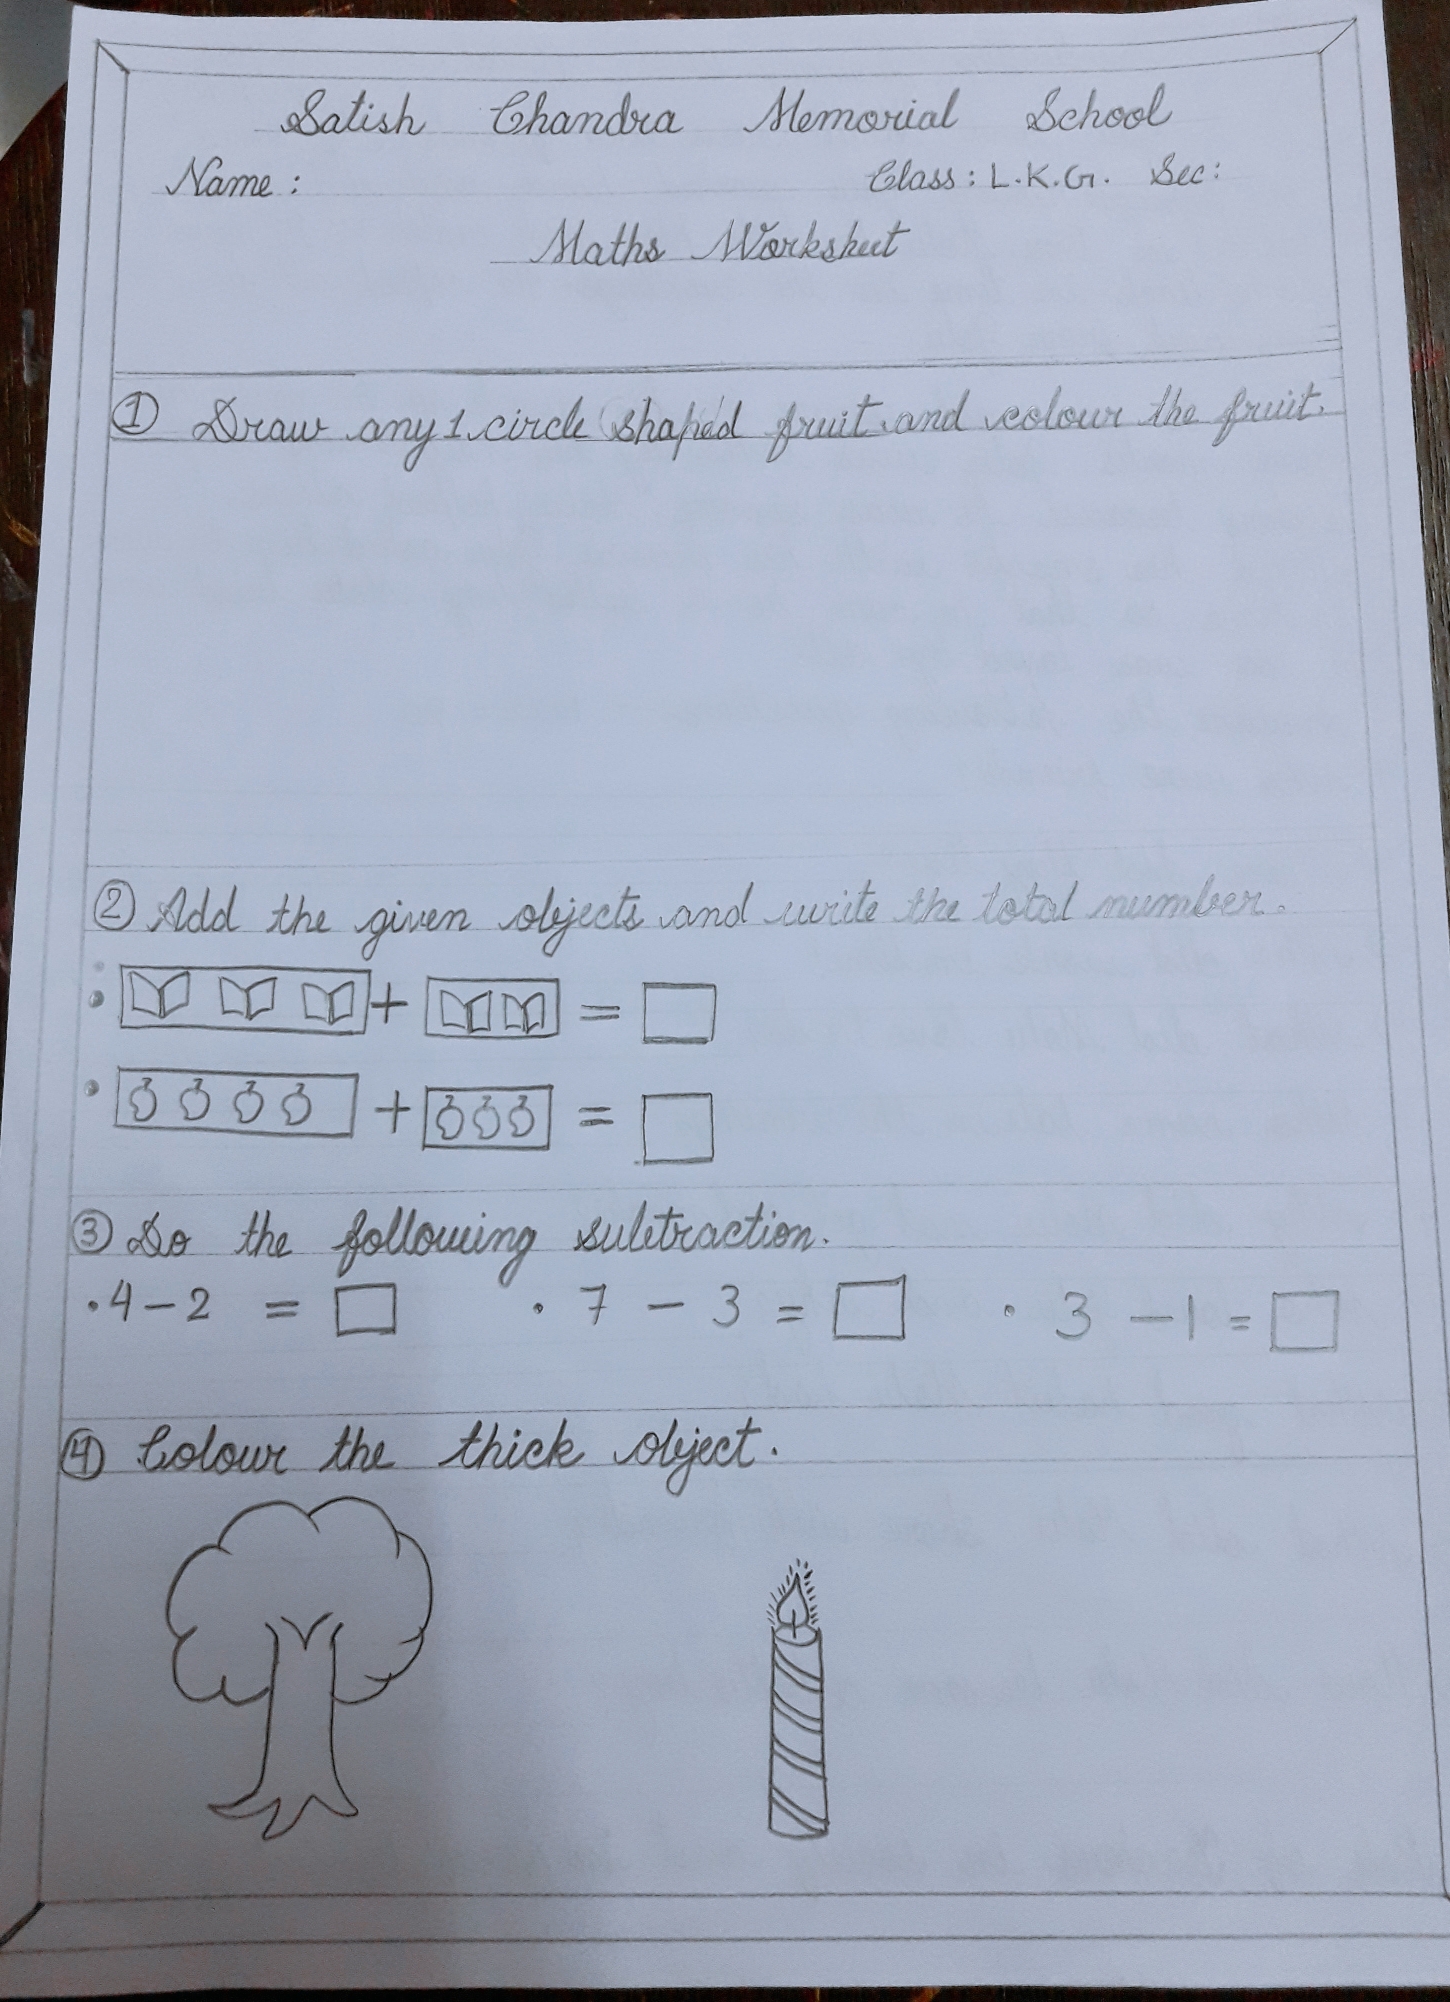 Satish Chandra Memorial School
Name : Class : L.K.G. Sec :
Maths Worksheet
① Draw any 1 circle shaped fruit and colour the fruit.
② Add the given objects and write the total number.
+ =
+ =
③ Do the following subtraction.
• 4 - 2 = • 7 - 3 = • 3 - 1 =
④ Colour the thick object.